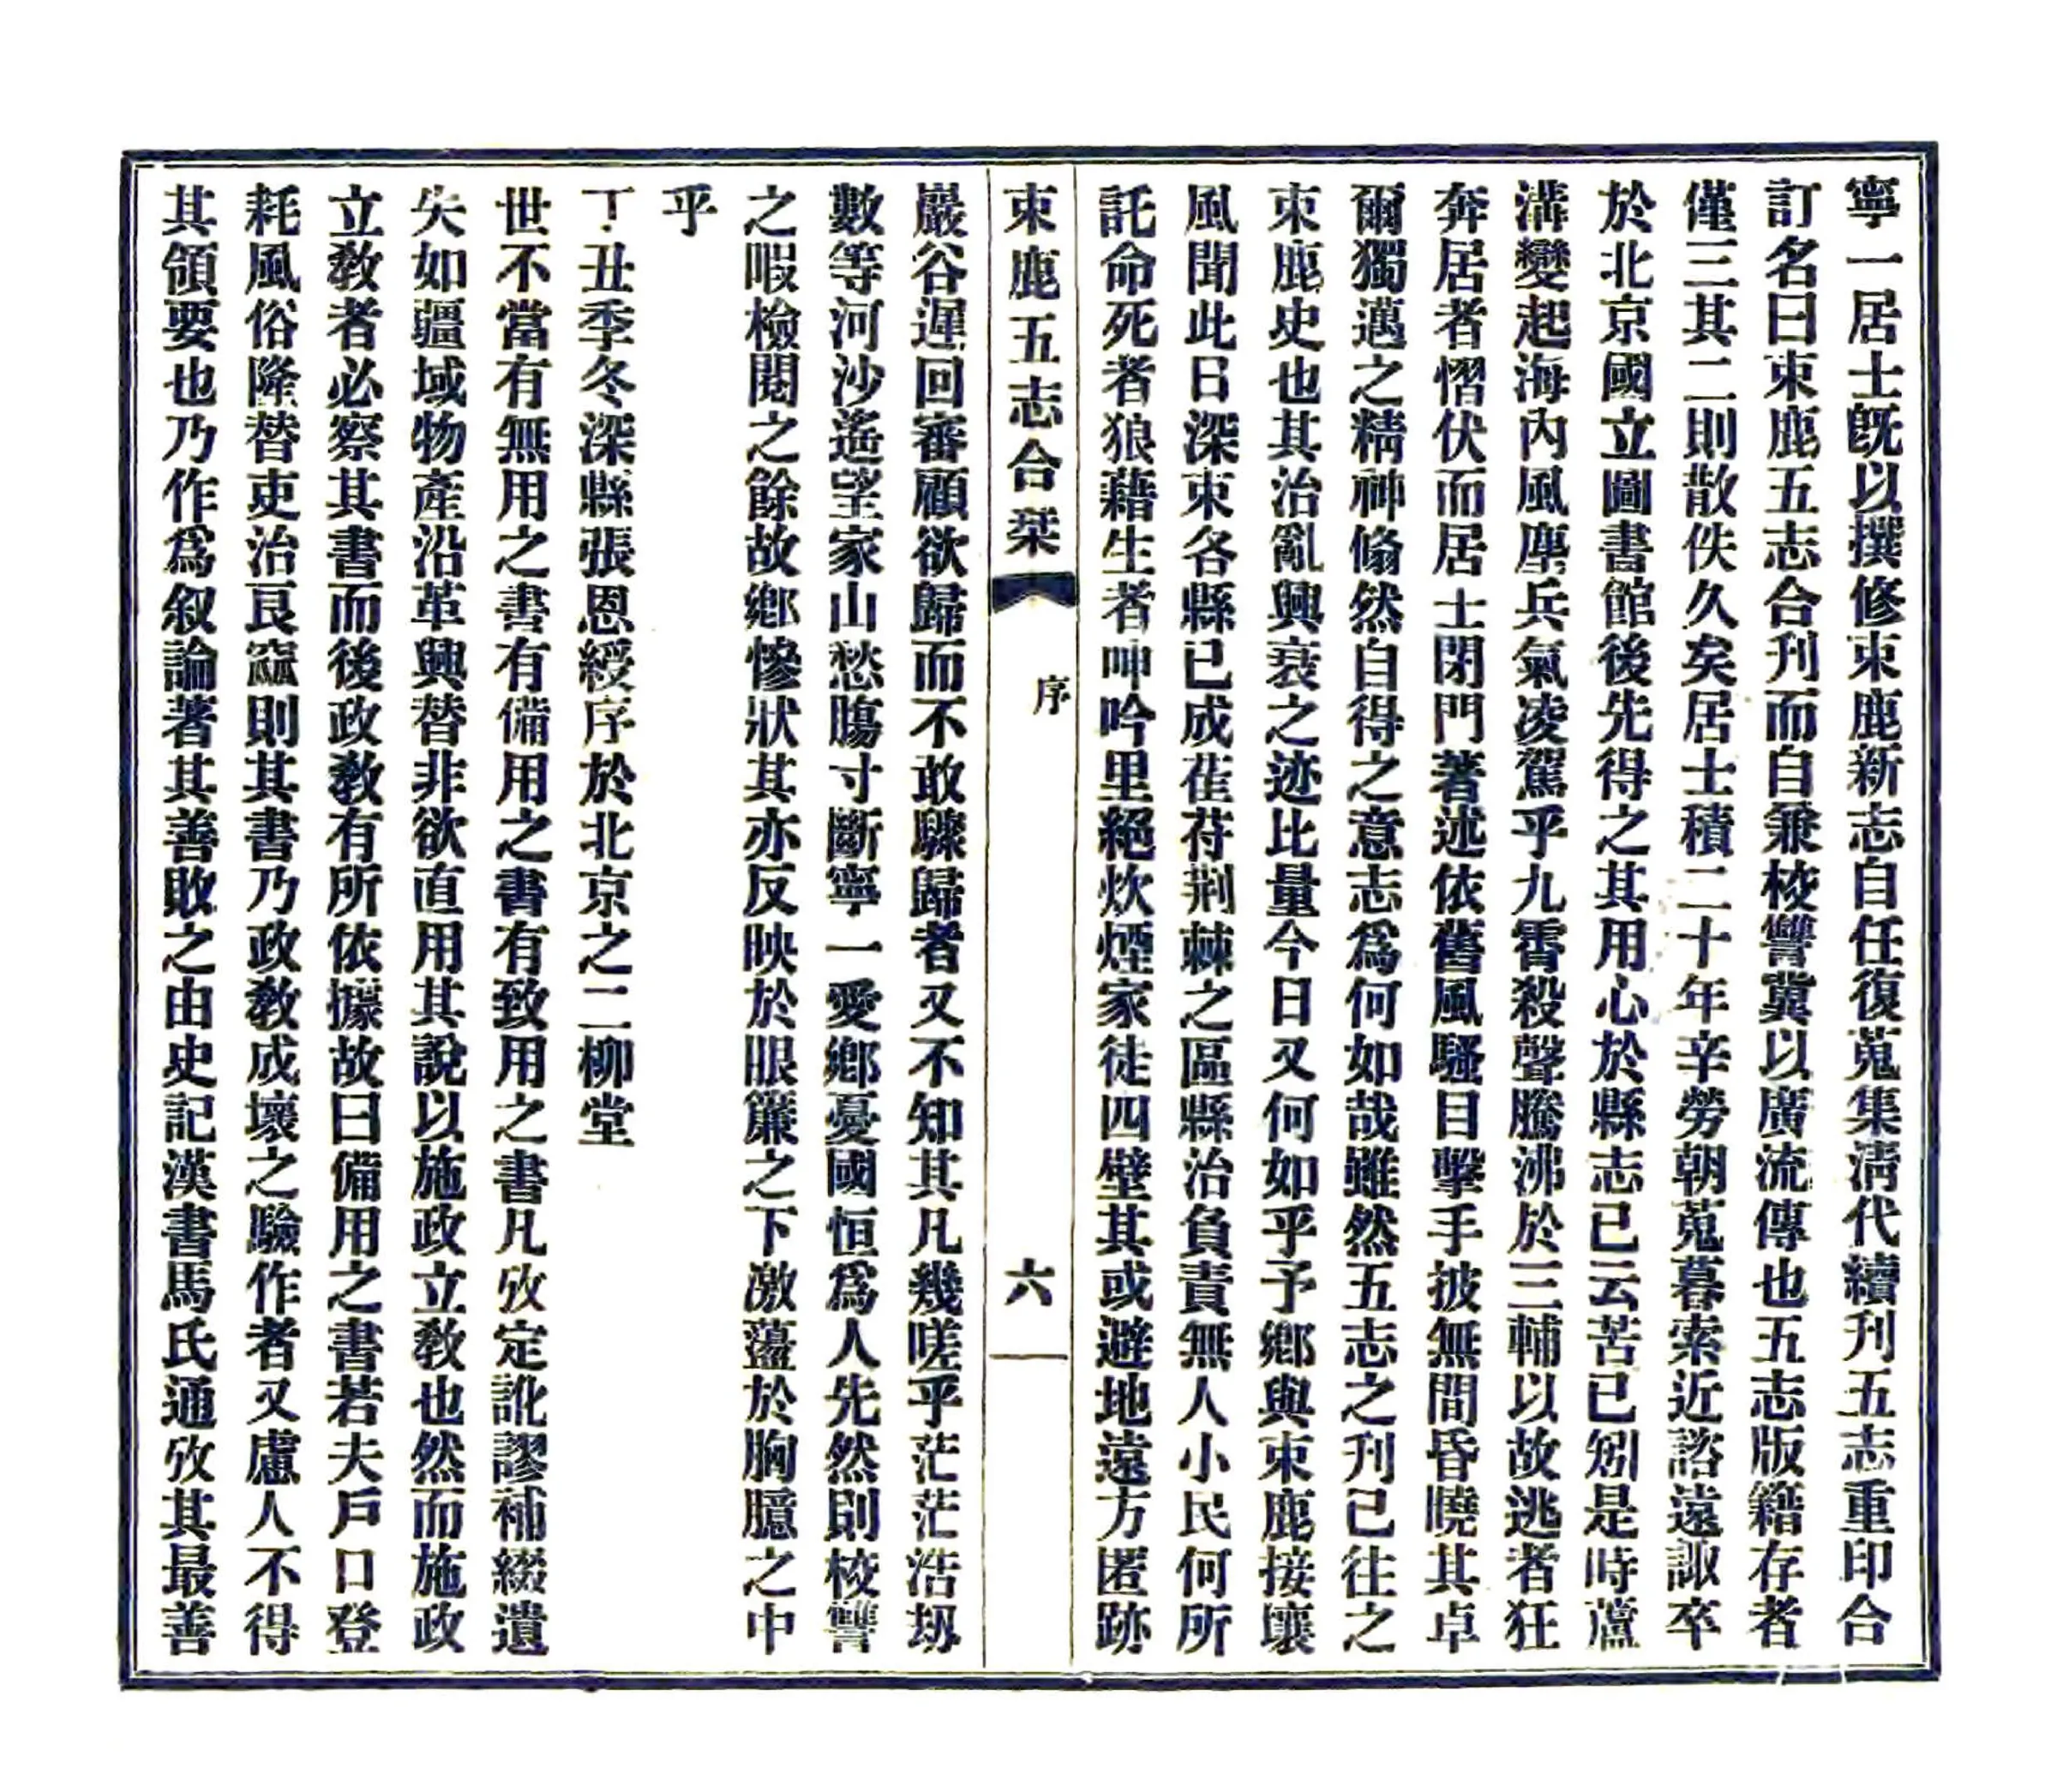 寧一居士既以撰修束鹿新志自任復蒐集清代續刊五志重印合
訂名曰束鹿五志合刊而自兼校讐冀以廣流傳也五志版籍存者
僅三其二則散佚久矣居士積二十年辛勞朝蒐暮索近諮遠諏卒
於北京國立圖書館後先得之其用心於縣志已云苦已矧是時蘆
溝變起海內風塵兵氣凌駕乎九霄殺聲騰沸於三輔以故逃者狂
奔居者慴伏而居士閉門著述依舊風騷目擊手披無間昏曉其卓
爾獨邁之精神翛然自得之意志爲何如哉雖然五志之刊已往之
束鹿史也其治亂興衰之迹比量今日又何如乎予鄉與束鹿接壤
風聞此日深束各縣已成萑苻荆棘之區縣治負責無人小民何所
託命死者狼藉生者呻吟里絕炊煙家徒四壁其或避地遠方匿跡
束鹿五志合栞
序
六
巖谷遲回審顧欲歸而不敢驟歸者又不知其凡幾嗟乎茫茫浩刼
數等河沙遙望家山愁腸寸斷寧一愛鄉憂國恒爲人先然則校讐
之暇檢閱之餘故鄉慘狀其亦反映於眼簾之下激盪於胸臆之中
乎
丁丑季冬深縣張恩綬序於北京之二柳堂
世不當有無用之書有備用之書有致用之書凡攷定訛謬補綴遺
失如疆域物產沿革興替非欲直用其說以施政立教也然而施政
立教者必察其書而後政教有所依據故曰備用之書若夫戶口登
耗風俗隆替吏治良窳則其書乃政教成壞之驗作者又慮人不得
其領要也乃作爲叙論著其善敗之由史記漢書馬氏通攷其最善